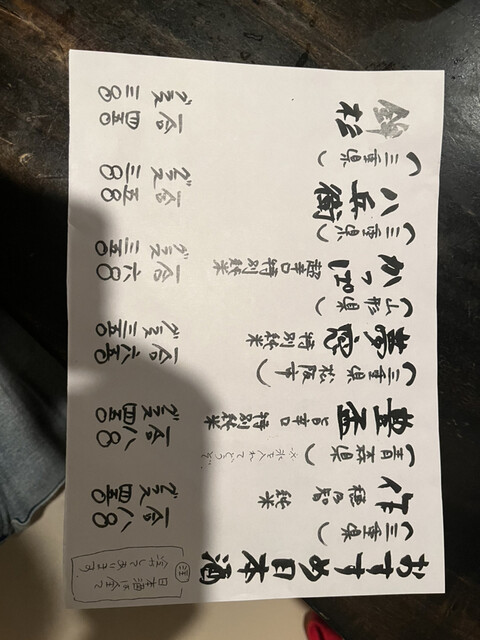 おすすめ日本酒
作
穂乃智
純米
（三重県）
グラス 四五〇
一合 八〇〇
豊盃
旨辛口
特別純米
（青森県）
※氷を入れてどうぞ。
グラス 四五〇
一合 八〇〇
夢窓
特別純米
（三重県松阪市）
グラス 三五〇
一合 六五〇
かっぱ
超辛口特別純米
（山形県）
グラス 三五〇
一合 六〇〇
八兵衛
（三重県）
グラス 三〇〇
一合 五〇〇
鉾杉
（三重県）
グラス 三〇〇
一合 四五〇
注
日本酒は全て
冷やしてあります